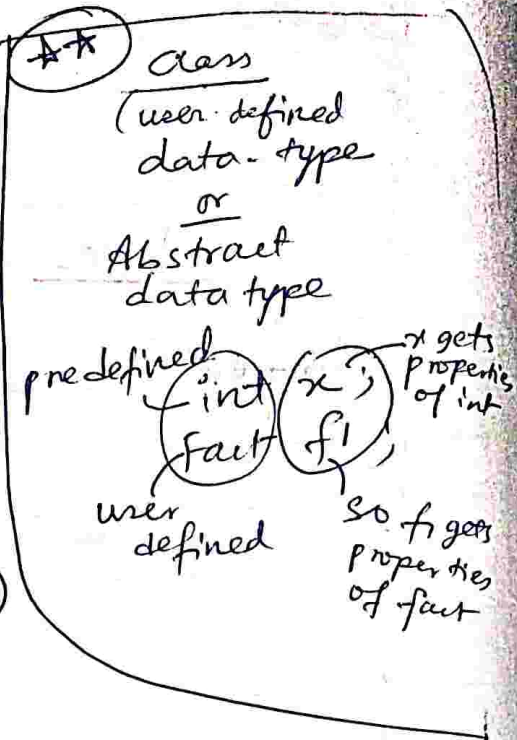 Class
(user-defined
data-type
or
Abstract
data type
predefined
int x;
x gets
properties
of int
fact f1;
user
defined
so f1 gets
properties
of fact